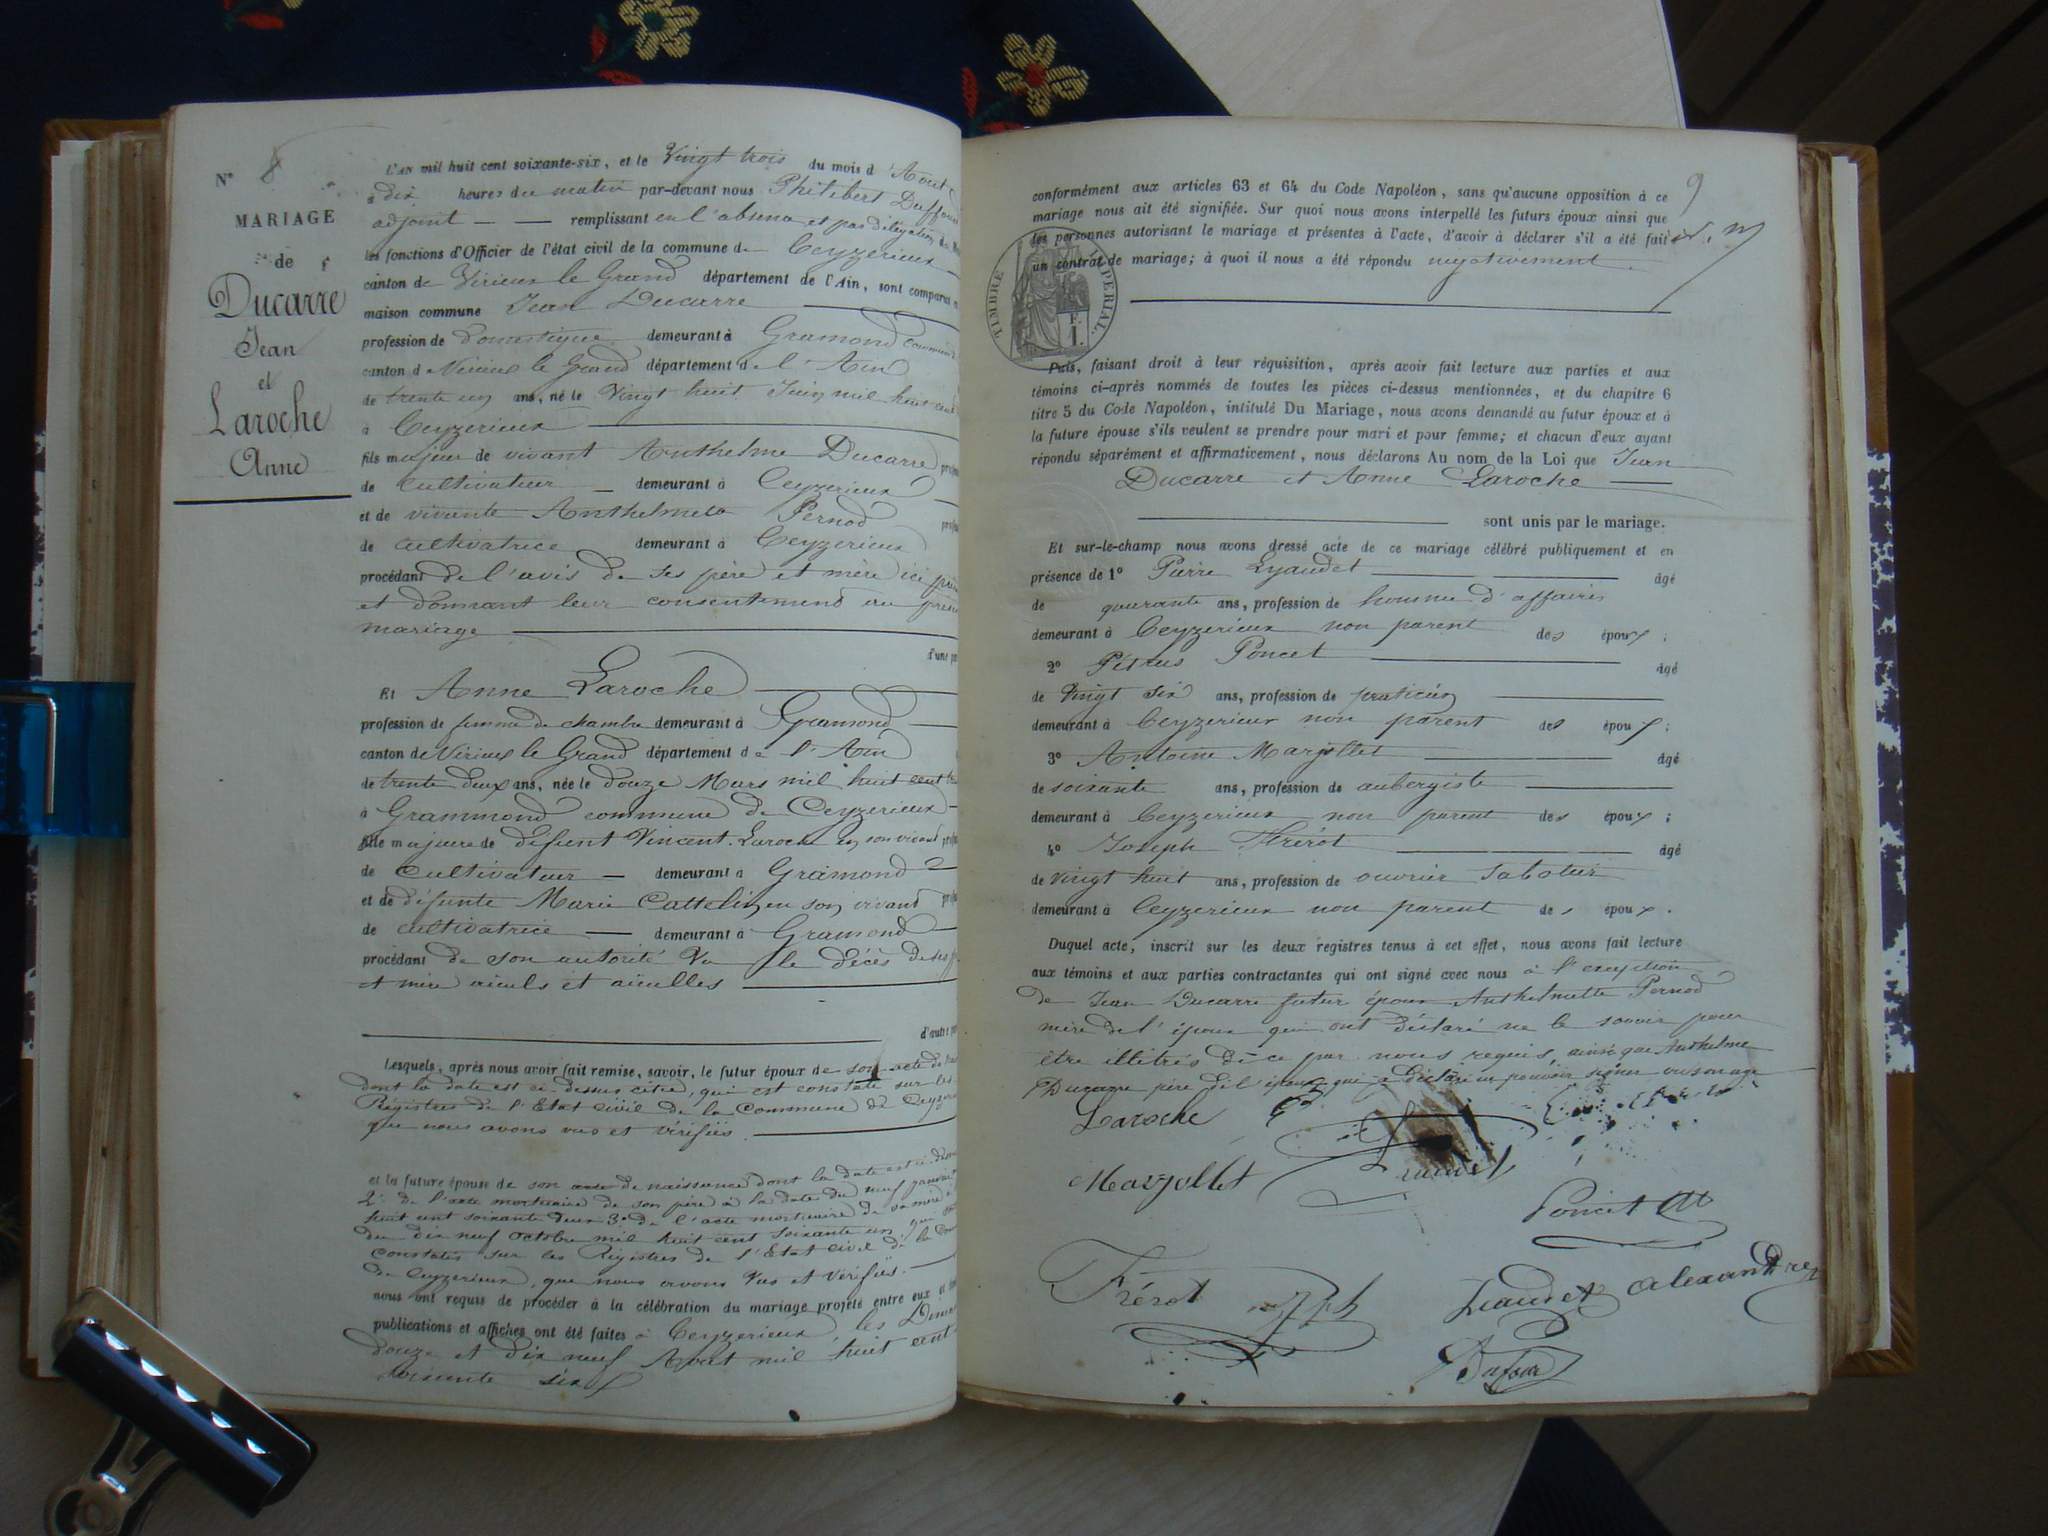 N° 8
MARIAGE
de
Ducarre
Jean
et
Laroche
Anne
L'AN mil huit cent soixante-six, et le Vingt trois du mois d'Aout
à dix heures du matin par-devant nous Philibert
adjoint remplissant en l'absence et par délégation
les fonctions d'Officier de l'état civil de la commune de Ceyzerieux
canton de Virieux le Grand département de l'Ain, sont comparus
maison commune Jean Ducarre
profession de domestique demeurant à Gramond
canton de Virieux le Grand département de l'Ain
de trente un ans, né le Vingt huit Juin mil huit cent
à Ceyzerieux
fils majeur de vivant Anthelme Ducarre
de cultivateur demeurant à Ceyzerieux
et de vivante Anthelmette Pernod
de cultivatrice demeurant à Ceyzerieux
procédant de l'avis de ses père et mère ici
et donnant leur consentement au
mariage
d'une
Et Anne Laroche
profession de femme de chambre demeurant à Gramond
canton de Virieux le Grand département de l'Ain
de trente deux ans, née le douze Mars mil huit cent
à Grammond commune de Ceyzerieux
fille majeure de défunt Vincent Laroche en son vivant
de cultivateur demeurant à Gramond
et de défunte Marie Cattelin en son vivant
de cultivatrice demeurant à Gramond
procédant de son autorité Vu le décès de ses
et mère aïeuls et aïeulles
d'autre
Lesquels, après nous avoir fait remise, savoir, le futur époux de son acte de
dont la date est ci-dessus citée, qui est constaté sur les
Régistres de l'Etat civil de la Commune de
que nous avons vus et vérifiés.
et la future épouse de son acte de naissance dont la date est ci-dessus
2° de l'acte mortuaire de son père à la date du neuf janvier
huit cent soixante deux 3° de l'acte mortuaire de sa mère
du dix neuf octobre mil huit cent soixante un, que
constatés sur les Régistres de l'Etat civil de la
de Ceyzerieux, que nous avons Vus et vérifiés.
nous ont requis de procéder à la célébration du mariage projeté entre eux
publications et affiches ont été faites à Ceyzerieux, les
douze et dix neuf Aout mil huit cent
soixante six
9
conformément aux articles 63 et 64 du Code Napoléon, sans qu'aucune opposition à ce
mariage nous ait été signifiée. Sur quoi nous avons interpellé les futurs époux ainsi que
les personnes autorisant le mariage et présentes à l'acte, d'avoir à déclarer s'il a été fait
un contrat de mariage; à quoi il nous a été répondu négativement.
TIMBRE IMPERIAL.
F.
1.
Puis, faisant droit à leur réquisition, après avoir fait lecture aux parties et aux
témoins ci-après nommés de toutes les pièces ci-dessus mentionnées, et du chapitre 6
titre 5 du Code Napoléon, intitulé Du Mariage, nous avons demandé au futur époux et à
la future épouse s'ils veulent se prendre pour mari et pour femme; et chacun d'eux ayant
répondu séparément et affirmativement, nous déclarons Au nom de la Loi que Jean
Ducarre et Anne Laroche
sont unis par le mariage.
Et sur-le-champ nous avons dressé acte de ce mariage célébré publiquement et en
présence de 1° Pierre Lyaudet âgé
de quarante ans, profession de homme d'affaires
demeurant à Ceyzerieux non parent des époux;
2° Pétrus Poncet âgé
de Vingt six ans, profession de praticien
demeurant à Ceyzerieux non parent des époux;
3° Antoine Marjollet âgé
de soixante ans, profession de aubergiste
demeurant à Ceyzerieux non parent des époux;
4° Joseph Frérot âgé
de vingt huit ans, profession de ouvrier sabotier
demeurant à Ceyzerieux non parent des époux.
Duquel acte, inscrit sur les deux registres tenus à cet effet, nous avons fait lecture
aux témoins et aux parties contractantes qui ont signé avec nous à l'exception
de Jean Ducarre futur époux Anthelmette Pernod
mère de l'époux qui ont déclaré ne le savoir pour
être illitrés de ce par nous requis, ainsi que Anthelme
Ducarre père de l'époux qui a déclaré ne pouvoir signer vu son age
Laroche
Marjollet
Poncet
Frérot
Alexandre
Dufour